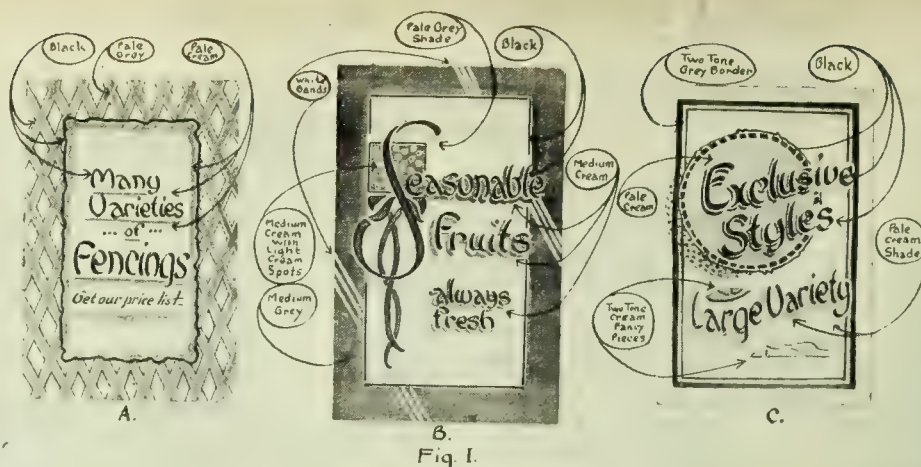 Black
Pale
Grey
Pale
Cream
Many
Varieties
... of ...
Fencings
Get our price list.
A.
Pale Grey
Shade
Black
White
Bands
Medium
Cream
Medium
Cream
with
Light
Cream
Spots
Medium
Grey
Seasonable
Fruits
always
fresh
B.
Two Tone
Grey Border
Black
Pale
Cream
Pale
Cream
Shade
Two Tone
Cream
Fancy
Pieces
Exclusive
Styles
Large Variety
C.
Fig. 1.